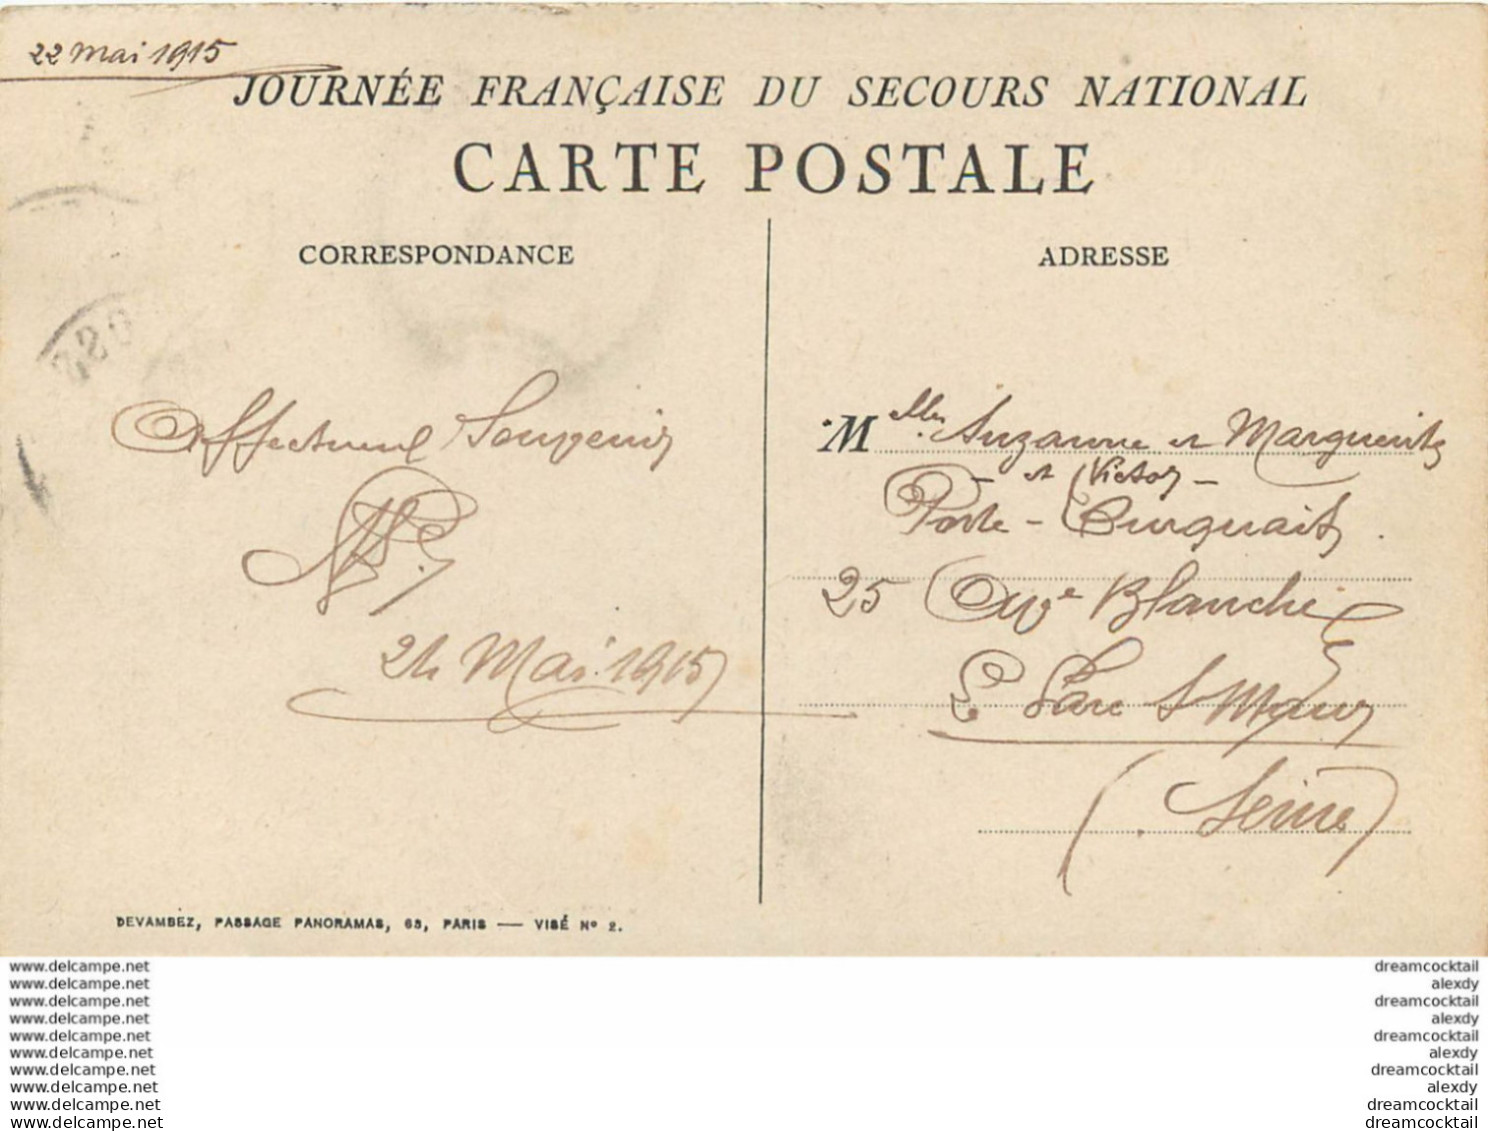 22 Mai 1915
JOURNÉE FRANÇAISE DU SECOURS NATIONAL
CARTE POSTALE
CORRESPONDANCE
ADRESSE
Affectueux Souvenirs
24 Mai 1915
M elles Suzanne et Marguerite
- et Victor -
Porte-
25 Ave Blanche
Le Parc St Maur
(Seine)
DEVAMBEZ, PASSAGE PANORAMAS, 63, PARIS — VISÉ No 2.
www.delcampe.net
www.delcampe.net
www.delcampe.net
www.delcampe.net
www.delcampe.net
www.delcampe.net
www.delcampe.net
www.delcampe.net
www.delcampe.net
www.delcampe.net
dreamcocktail
alexdy
dreamcocktail
alexdy
dreamcocktail
alexdy
dreamcocktail
alexdy
dreamcocktail
dreamcocktail